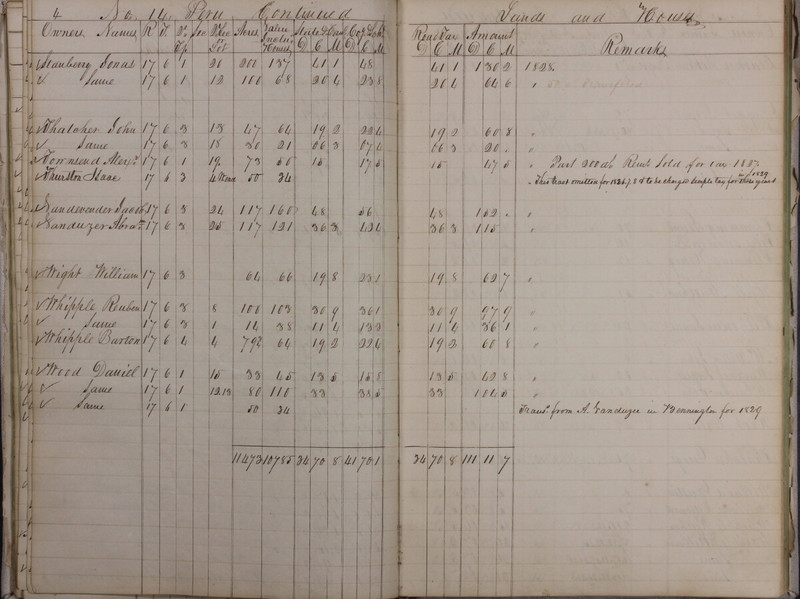 4 No 14 Peru Continued Lands and Houses
Owners Names R T Acres State & Canl Co & Sch Road Tax Amount
D C M D C M D C M D C M Remarks
Jonas 17 6 1 20 200 137 41 1 48 41 1 130 2 1828
Same 17 6 1 12 100 68 20 4 23 8 20 4 64 6 "
Thatcher John 17 6 3 13 47 64 19 2 22 4 19 2 60 8 "
Same 17 6 3 18 30 21 06 3 07 4 06 3 20 "
Townsend Alexr 17 6 1 19 73 50 15 17 5 15 47 5 " Part 200 Sold for tax 1827
Thurston Isaac 17 6 3 50 34 " This tract omitted for 1826.7.8 & to be charged simple tax for those years 1829
Jacob 17 6 3 24 117 160 48 56 48 152 "
Vanduzer Abrm 17 6 3 25 117 121 36 3 42 4 36 3 115 "
Wight William 17 6 3 64 66 19 8 23 1 19 8 62 7 "
Whipple Reuben 17 6 3 8 100 103 30 9 36 1 30 9 97 9 "
Same 17 6 3 1 14 38 11 4 13 3 11 4 36 1 "
Whipple Barton 17 6 4 4 79 64 19 2 22 4 19 2 60 8 "
Wood Daniel 17 6 1 15 33 45 13 5 15 8 13 5 42 8 "
Same 17 6 1 12.13 80 110 33 38 5 33 104 5 "
Same 17 6 1 50 34 Trans. from A. Vanduzer in Bennington for 1829
11473 10785 34 70 8 41 70 1 34 70 8 111 11 7